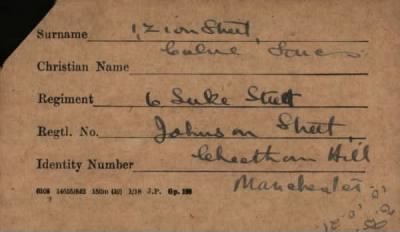 Surname 1, Zion Street,
Colne Lancs
Christian Name
Regiment 6 Duke Street
Regtl. No. Johnson Street,
Cheetham Hill
Identity Number
Manchester
6108 14655/842 150m (10) 1/18 J.P. Gp. 138